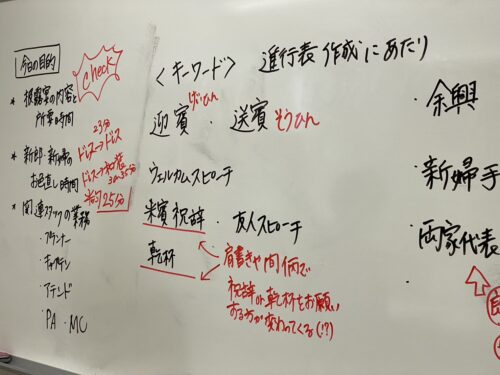 今日の目的
check
* 披露宴の内容と
所要時間
* 新郎・新婦の
お色直し時間
23分
ドレス→ドレス
ドレス→和装
30~35分
約25分
* 関連スタッフの業務
・プランナー
・キャプテン
・アテンド
・PA・MC
〈キーワード〉 進行表作成にあたり
げいひん
迎賓・送賓 そうひん
ウェルカムスピーチ
来賓祝辞・友人スピーチ
乾杯
肩書きや間柄で
祝辞or乾杯をお願い
する方が変わってくる(!?)
・余興
・新婦手
・両家代表